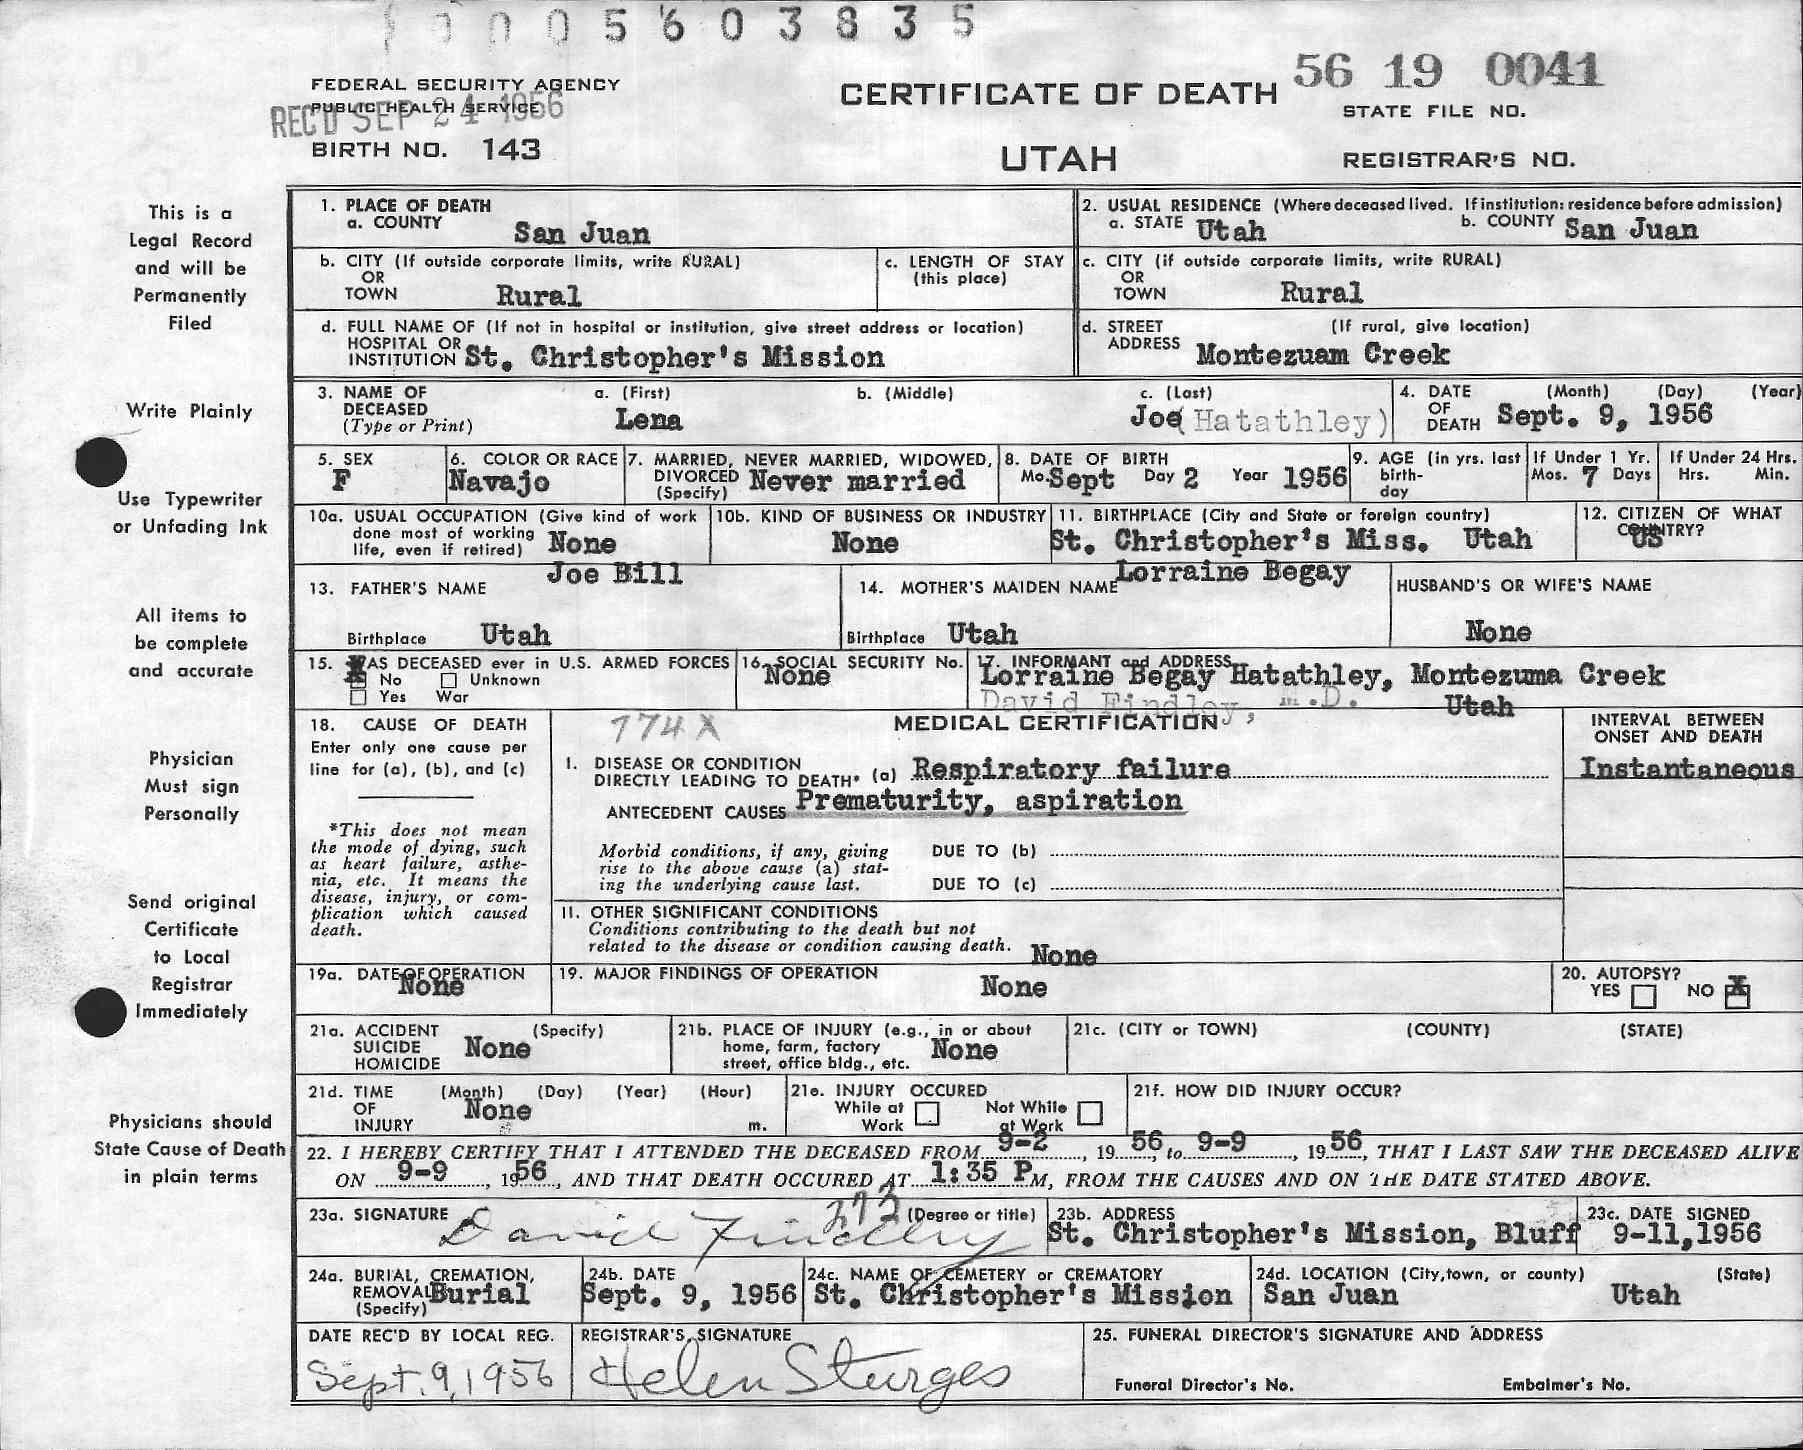 0005603835
56 19 0041
FEDERAL SECURITY AGENCY
PUBLIC HEALTH SERVICE
REC'D SEP 24 1956
CERTIFICATE OF DEATH
STATE FILE NO.
BIRTH NO. 143
UTAH
REGISTRAR'S NO.
This is a
Legal Record
and will be
Permanently
Filed
Write Plainly
Use Typewriter
or Unfading Ink
All items to
be complete
and accurate
Physician
Must sign
Personally
Send original
Certificate
to Local
Registrar
Immediately
Physicians should
State Cause of Death
in plain terms
1. PLACE OF DEATH
a. COUNTY San Juan
2. USUAL RESIDENCE (Where deceased lived. If institution: residence before admission)
a. STATE Utah b. COUNTY San Juan
b. CITY (If outside corporate limits, write RURAL)
OR
TOWN Rural
c. LENGTH OF STAY
(this place)
c. CITY (if outside corporate limits, write RURAL)
OR
TOWN Rural
d. FULL NAME OF (If not in hospital or institution, give street address or location)
HOSPITAL OR
INSTITUTION St. Christopher's Mission
d. STREET (If rural, give location)
ADDRESS Montezuam Creek
3. NAME OF
DECEASED
(Type or Print)
a. (First) b. (Middle) c. (Last)
Lena Joe( Hatathley)
4. DATE (Month) (Day) (Year)
OF
DEATH Sept. 9, 1956
5. SEX
F
6. COLOR OR RACE
Navajo
7. MARRIED, NEVER MARRIED, WIDOWED,
DIVORCED Never married
(Specify)
8. DATE OF BIRTH
Mo. Sept Day 2 Year 1956
9. AGE (in yrs. last
birth-
day
If Under 1 Yr.
Mos. 7 Days
If Under 24 Hrs.
Hrs. Min.
10a. USUAL OCCUPATION (Give kind of work
done most of working
life, even if retired) None
10b. KIND OF BUSINESS OR INDUSTRY
None
11. BIRTHPLACE (City and State or foreign country)
St. Christopher's Miss. Utah
12. CITIZEN OF WHAT
COUNTRY?
US
13. FATHER'S NAME Joe Bill
Birthplace Utah
14. MOTHER'S MAIDEN NAME Lorraine Begay
Birthplace Utah
HUSBAND'S OR WIFE'S NAME
None
15. WAS DECEASED ever in U.S. ARMED FORCES
X No Unknown
Yes War
16. SOCIAL SECURITY No.
None
17. INFORMANT and ADDRESS
Lorraine Begay Hatathley, Montezuma Creek
Utah
David Findley, M.D.
18. CAUSE OF DEATH
Enter only one cause per
line for (a), (b), and (c)
*This does not mean
the mode of dying, such
as heart failure, asthe-
nia, etc. It means the
disease, injury, or com-
plication which caused
death.
774X
MEDICAL CERTIFICATION
INTERVAL BETWEEN
ONSET AND DEATH
I. DISEASE OR CONDITION
DIRECTLY LEADING TO DEATH* (a) Respiratory failure Instantaneous
ANTECEDENT CAUSES Prematurity, aspiration
Morbid conditions, if any, giving
rise to the above cause (a) stat-
ing the underlying cause last.
DUE TO (b)
DUE TO (c)
II. OTHER SIGNIFICANT CONDITIONS
Conditions contributing to the death but not
related to the disease or condition causing death. None
19a. DATE OF OPERATION
None
19. MAJOR FINDINGS OF OPERATION
None
20. AUTOPSY?
YES NO X
21a. ACCIDENT (Specify)
SUICIDE
HOMICIDE
None
21b. PLACE OF INJURY (e.g., in or about
home, farm, factory
street, office bldg., etc.
None
21c. (CITY or TOWN) (COUNTY) (STATE)
21d. TIME (Month) (Day) (Year) (Hour)
OF
INJURY None m.
21e. INJURY OCCURED
While at
Work
Not While
at Work
21f. HOW DID INJURY OCCUR?
22. I HEREBY CERTIFY THAT I ATTENDED THE DECEASED FROM 9-2, 1956, to 9-9, 1956, THAT I LAST SAW THE DECEASED ALIVE
ON 9-9, 1956, AND THAT DEATH OCCURED AT 1:35 PM, FROM THE CAUSES AND ON THE DATE STATED ABOVE.
23a. SIGNATURE (Degree or title)
David Findley
373
23b. ADDRESS
St. Christopher's Mission, Bluff
23c. DATE SIGNED
9-11,1956
24a. BURIAL, CREMATION,
REMOVAL Burial
(Specify)
24b. DATE
Sept. 9, 1956
24c. NAME OF CEMETERY or CREMATORY
St. Christopher's Mission
24d. LOCATION (City, town, or county) (State)
San Juan Utah
DATE REC'D BY LOCAL REG.
Sept. 9, 1956
REGISTRAR'S SIGNATURE
Helen Sturges
25. FUNERAL DIRECTOR'S SIGNATURE AND ADDRESS
Funeral Director's No. Embalmer's No.